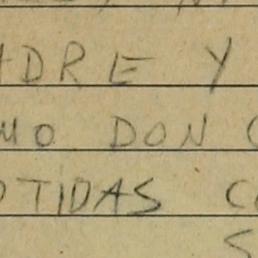 ADRE Y
MO DON
OTIDAS C
S